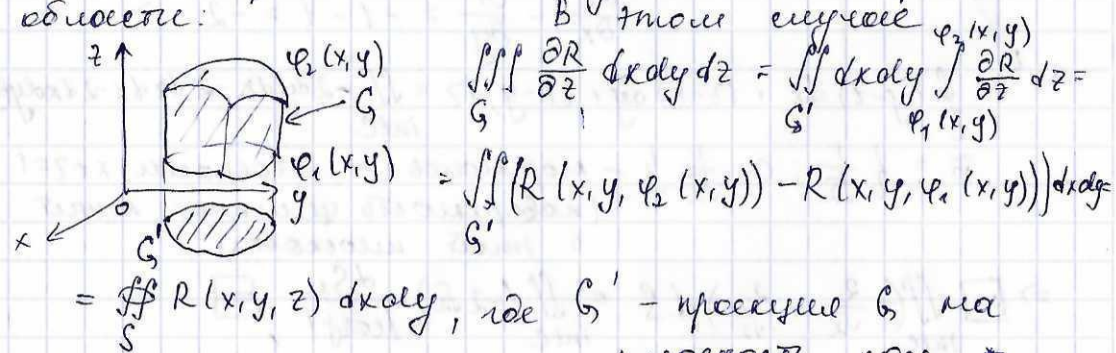 области: В этом случае
z φ₂(x,y) G φ₁(x,y) y 0 x G'
∭_G ∂R/∂z dxdydz = ∬_G' dxdy ∫_{φ₁(x,y)}^{φ₂(x,y)} ∂R/∂z dz =
= ∬_G' (R(x,y,φ₂(x,y)) − R(x,y,φ₁(x,y))) dxdy =
= ∯_S R(x,y,z) dxdy, где G' - проекция G на